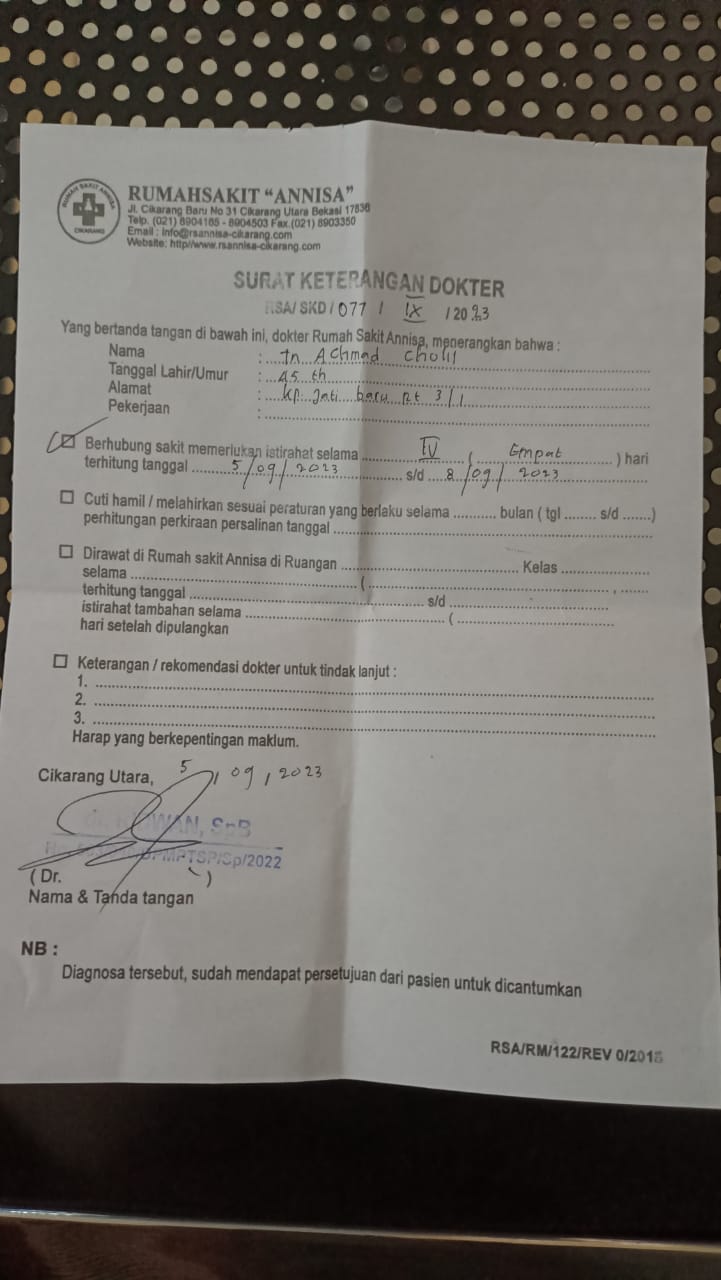 RUMAH SAKIT ANNISA
CIKARANG
RUMAHSAKIT “ANNISA”
Jl. Cikarang Baru No 31 Cikarang Utara Bekasi 17836
Telp. (021) 8904165 - 8904503 Fax.(021) 8903350
Email : info@rsannisa-cikarang.com
Website: http//www.rsannisa-cikarang.com
SURAT KETERANGAN DOKTER
RSA/ SKD / 077 / IX / 2023
Yang bertanda tangan di bawah ini, dokter Rumah Sakit Annisa, menerangkan bahwa :
Nama : Tn Achmad
Tanggal Lahir/Umur : 45 th
Alamat : Kp. Jati baru Rt 3/1
Pekerjaan :
Berhubung sakit memerlukan istirahat selama IV ( Empat ) hari
terhitung tanggal 5/09/2023 s/d 8/09/2023
Cuti hamil / melahirkan sesuai peraturan yang berlaku selama .......... bulan ( tgl ........ s/d .......)
perhitungan perkiraan persalinan tanggal
Dirawat di Rumah sakit Annisa di Ruangan Kelas
selama ( ,
terhitung tanggal s/d
istirahat tambahan selama (
hari setelah dipulangkan
Keterangan / rekomendasi dokter untuk tindak lanjut :
1.
2.
3.
Harap yang berkepentingan maklum.
Cikarang Utara, 5, 09, 2023
SpB
DPMPTSP/Sp/2022
( Dr. )
Nama & Tanda tangan
NB :
Diagnosa tersebut, sudah mendapat persetujuan dari pasien untuk dicantumkan
RSA/RM/122/REV 0/2018